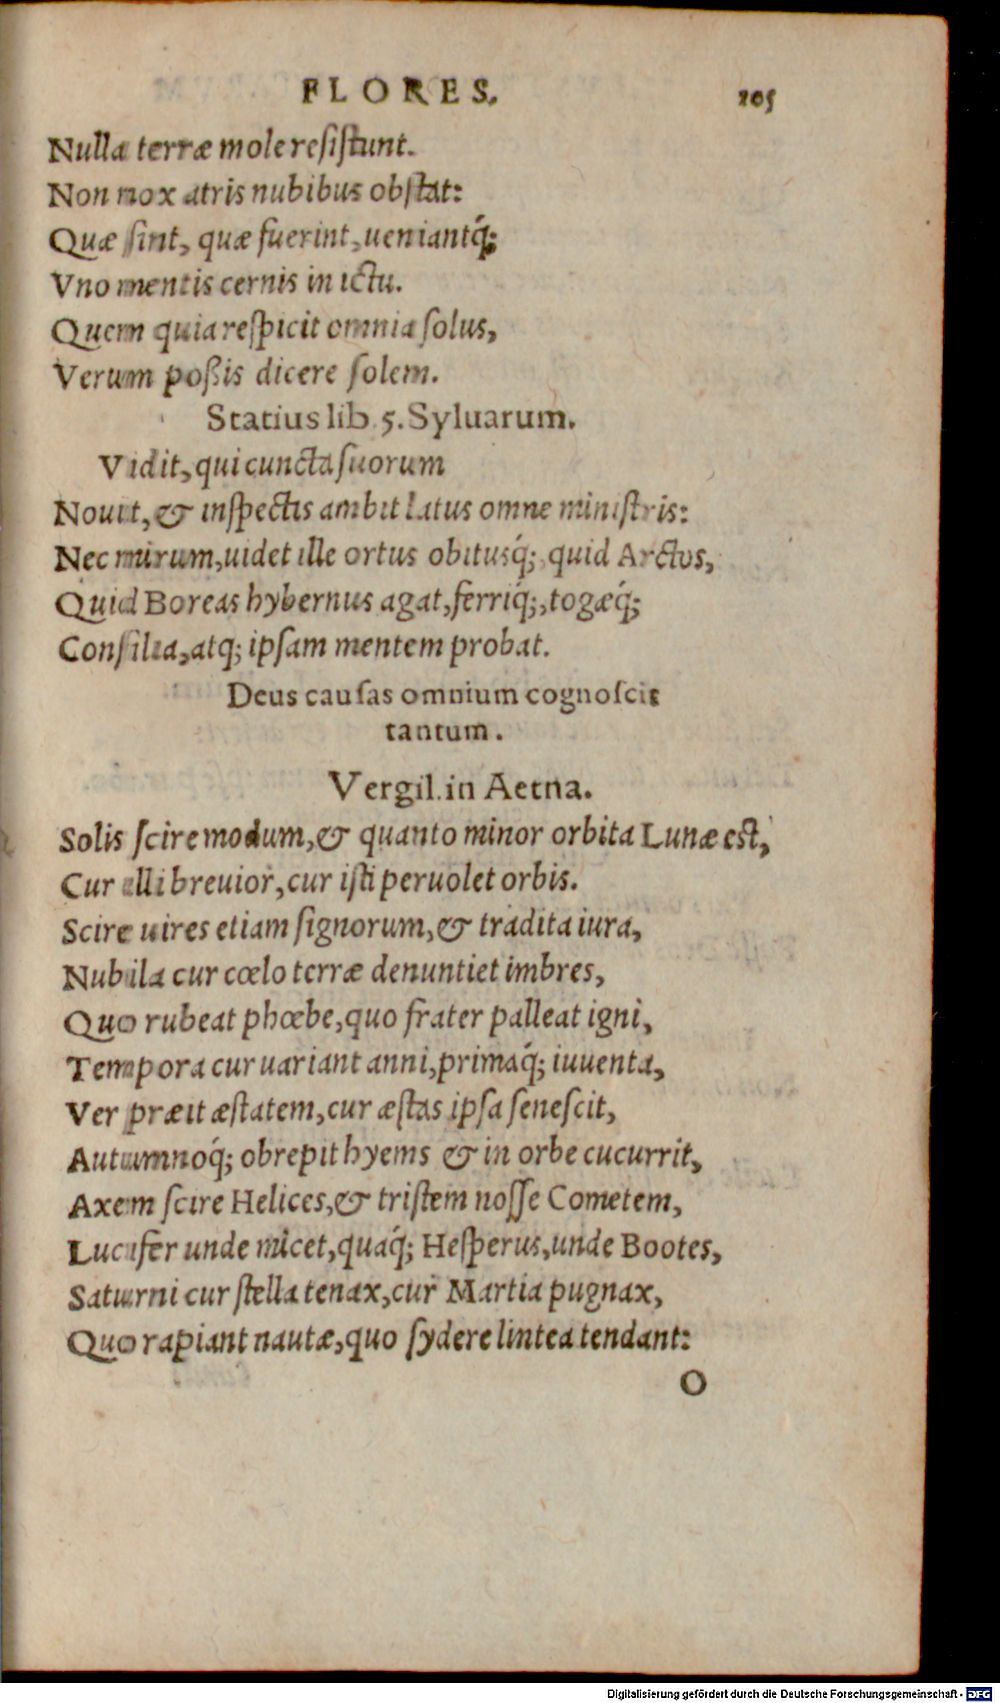 FLORES. 205
Nulla terræ mole resiſtunt.
Non nox atris nubibus obſtat:
Quæ ſint, quæ fuerint, ueniantq́;
Vno mentis cernis in ictu.
Quem quia reſpicit omnia ſolus,
Verum poßis dicere ſolem.
Statius lib. 5. Syluarum.
Vidit, qui cuncta ſuorum
Nouit, & inſpectis ambit latus omne miniſtris:
Nec mirum, uidet ille ortus obitusq́;, quid Arctos,
Quid Boreas hybernus agat, ferriq́;, togæq́;
Conſilia, atq; ipſam mentem probat.
Deus cauſas omnium cognoſcit
tantum.
Vergil. in Aetna.
Solis ſcire modum, & quanto minor orbita Lunæ eſt,
Cur illi breuior, cur iſti peruolet orbis.
Scire uires etiam ſignorum, & tradita iura,
Nubila cur cœlo terræ denuntiet imbres,
Quo rubeat phœbe, quo frater palleat igni,
Tempora cur uariant anni, primaq́; iuuenta,
Ver præit æſtatem, cur æſtas ipſa ſeneſcit,
Autumnoq́; obrepit hyems & in orbe cucurrit,
Axem ſcire Helices, & triſtem noſſe Cometem,
Lucifer unde micet, quaq́; Heſperus, unde Bootes,
Saturni cur ſtella tenax, cur Martia pugnax,
Quo rapiant nautæ, quo ſydere lintea tendant:
O
Digitalisierung gefördert durch die Deutsche Forschungsgemeinschaft - DFG